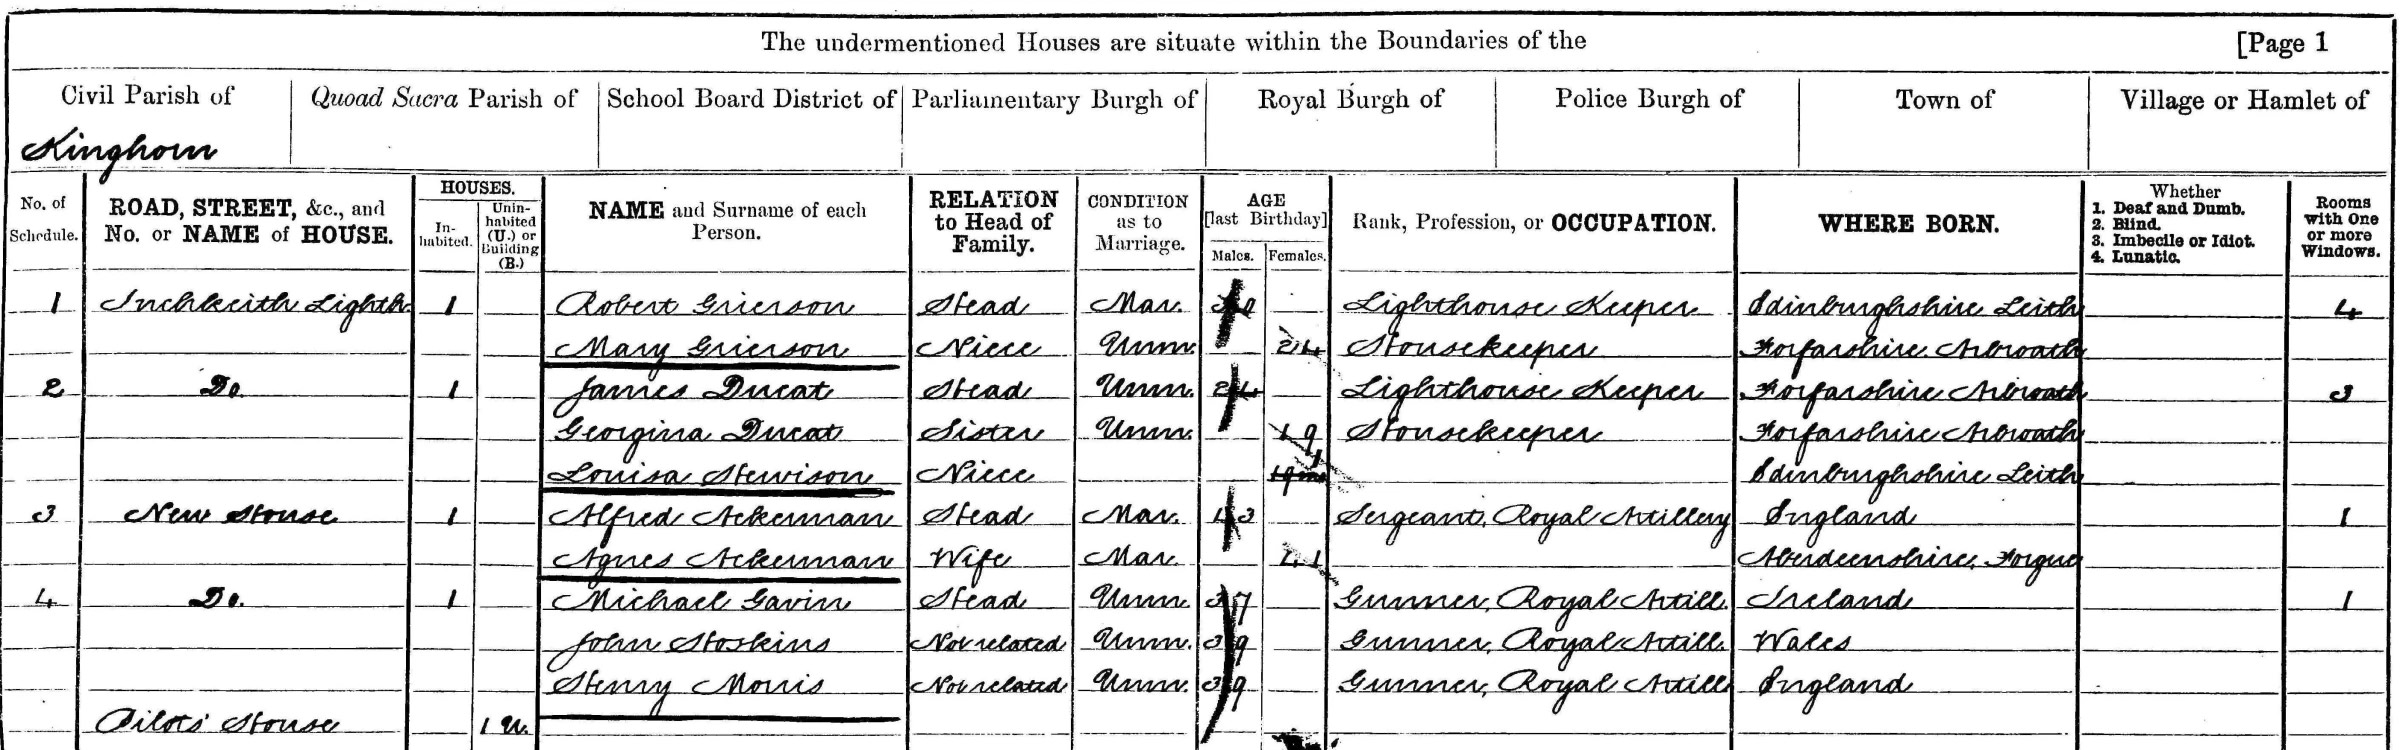 The undermentioned Houses are situate within the Boundaries of the [Page 1
Civil Parish of Quoad Sacra Parish of School Board District of Parliamentary Burgh of Royal Burgh of Police Burgh of Town of Village or Hamlet of
Kinghorn
No. of Schedule. ROAD, STREET, &c., and No. or NAME of HOUSE. HOUSES. Inhabited. Uninhabited (U.) or Building (B.) NAME and Surname of each Person. RELATION to Head of Family. CONDITION as to Marriage. AGE [last Birthday] Males. Females. Rank, Profession, or OCCUPATION. WHERE BORN. Whether 1. Deaf and Dumb. 2. Blind. 3. Imbecile or Idiot. 4. Lunatic. Rooms with One or more Windows.
1 Inchkeith Lighth. 1 Robert Grierson Head Mar. Lighthouse Keeper Edinburghshire Leith 4
Mary Grierson Niece Unm. 24 Housekeeper Forfarshire Arbroath
2 Do. 1 James Ducat Head Unm. 24 Lighthouse Keeper Forfarshire Arbroath 3
Georgina Ducat Sister Unm. 19 Housekeeper Forfarshire Arbroath
Louisa Hewison Niece Edinburghshire Leith
3 New House 1 Alfred Ackerman Head Mar. Sergeant, Royal Artillery England 1
Agnes Ackerman Wife Mar. 41 Aberdeenshire, Forgue
4 Do. 1 Michael Gavin Head Unm. 37 Gunner, Royal Artill. Ireland 1
John Hoskins Not related Unm. 39 Gunner, Royal Artill. Wales
Henry Morris Not related Unm. 39 Gunner, Royal Artill England
Pilots' House 1 U.